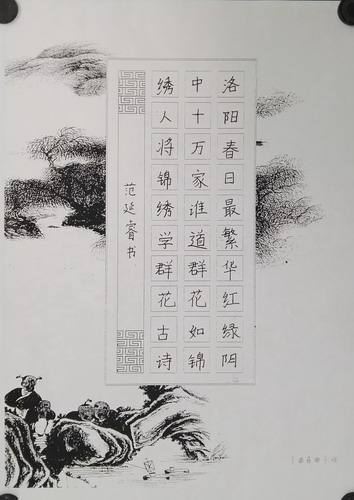 洛阳春日最繁华红绿阴
中十万家谁道群花如锦
绣人将锦绣学群花古诗
范延睿书